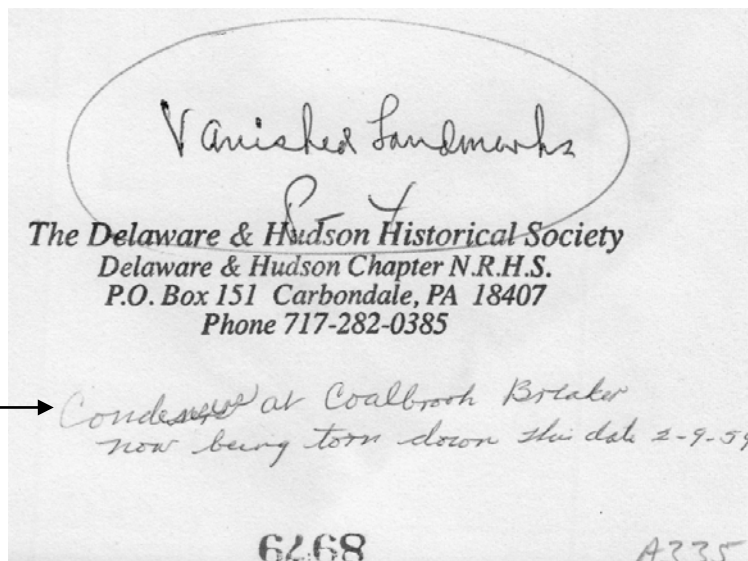 Vanished Landmarks
Pt
The Delaware & Hudson Historical Society
Delaware & Hudson Chapter N.R.H.S.
P.O. Box 151 Carbondale, PA 18407
Phone 717-282-0385
at Coalbrook Breaker
now being torn down this date 2-9-59
A335